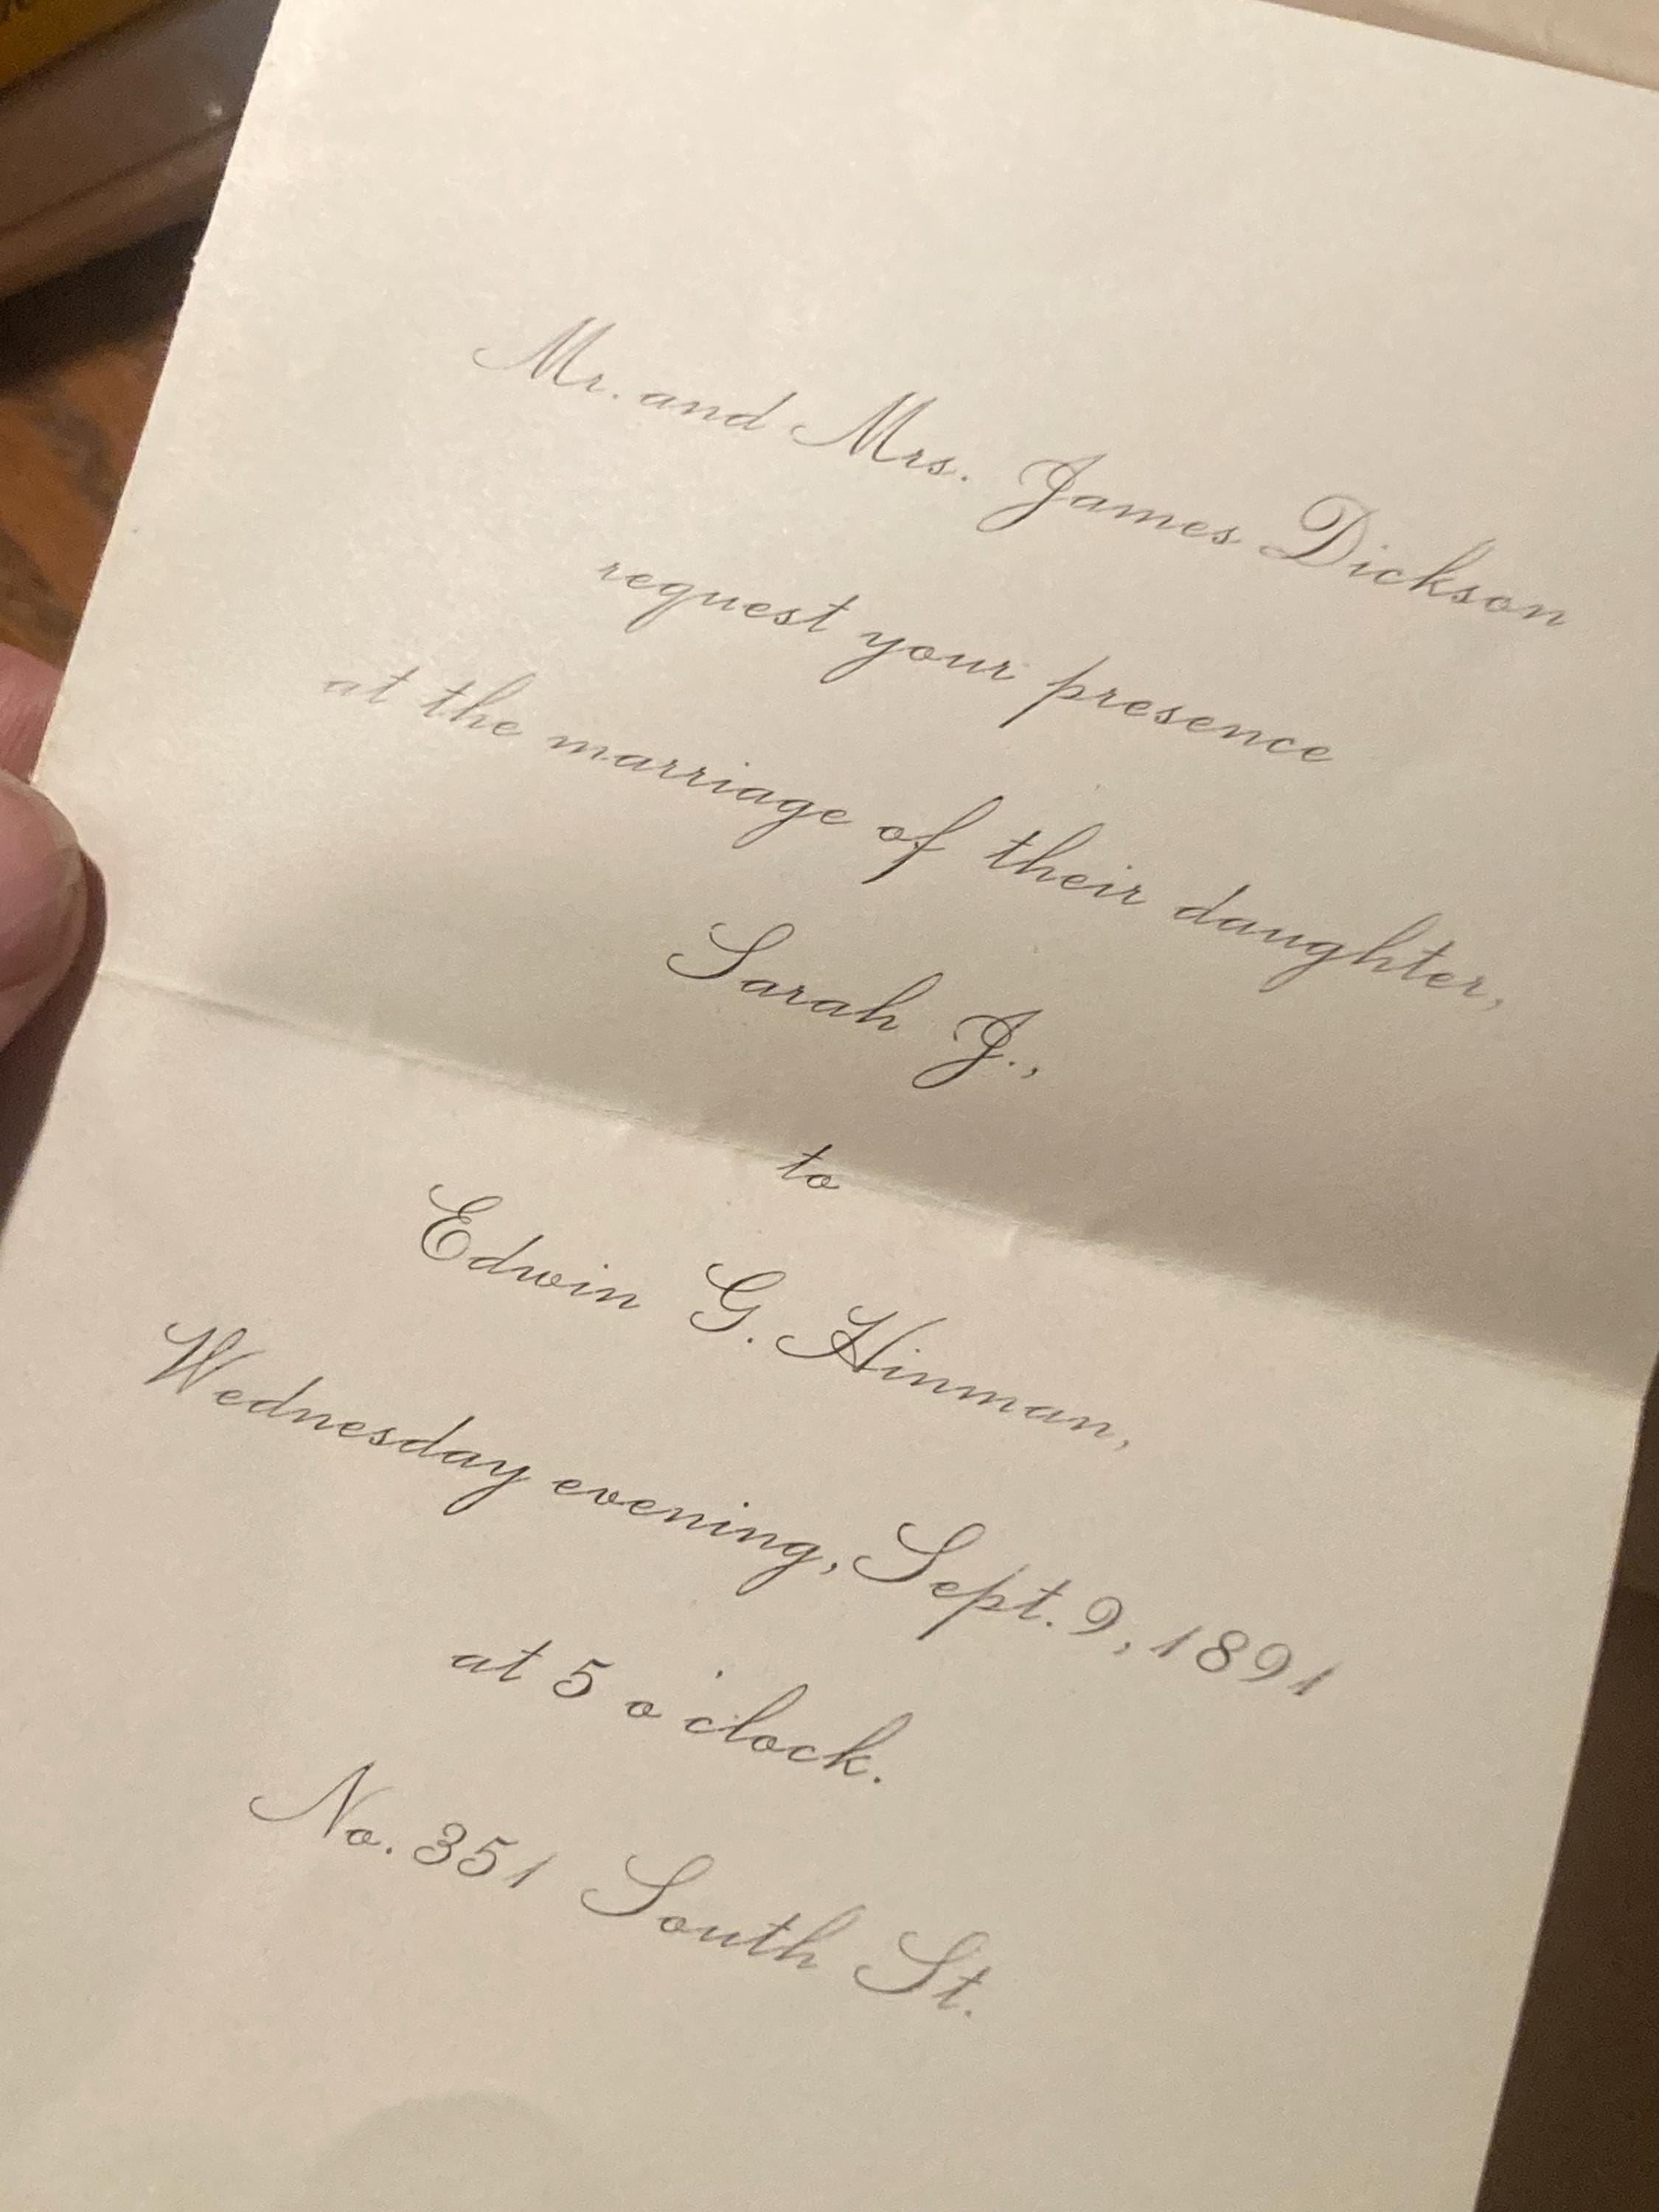 Mr. and Mrs. James Dickson
request your presence
at the marriage of their daughter,
Sarah J.,
to
Edwin G. Hinman,
Wednesday evening, Sept. 9, 1891
at 5 o'clock.
No. 351 South St.